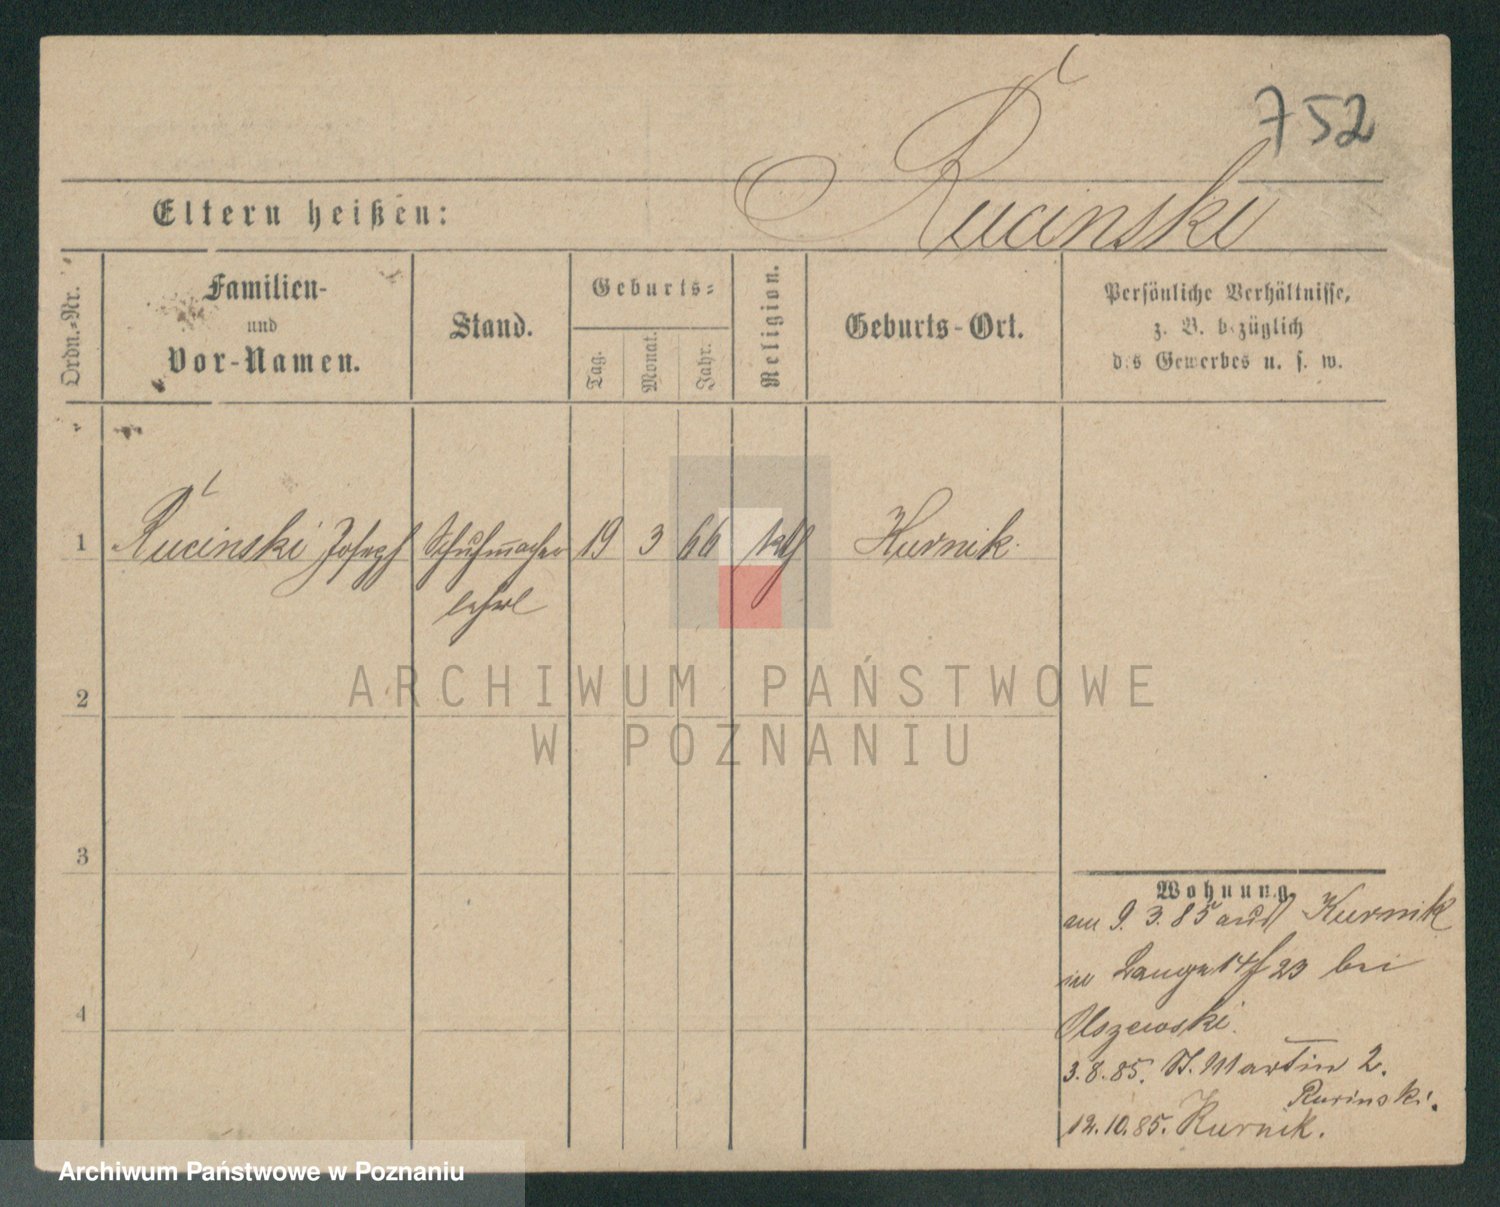 752
Rucinski
Eltern heißen:
Ordn.-Nr.
Familien-
und
Vor-Namen.
Stand.
Geburts-
Tag.
Monat.
Jahr.
Religion.
Geburts-Ort.
Persönliche Verhältnisse,
z. B. bezüglich
des Gewerbes u. s. w.
1 Rucinski Joseph Schuhmacher 19 3 66 kth Kurnik.
lehrl
2
3
4
Wohnung
am 9. 3. 85 aus Kurnik
in Lange 23 bei
Olszewski.
3. 8. 85. St. Martin 2.
Rucinski.
12. 10. 85. Kurnik.
ARCHIWUM PAŃSTWOWE
W POZNANIU
Archiwum Państwowe w Poznaniu